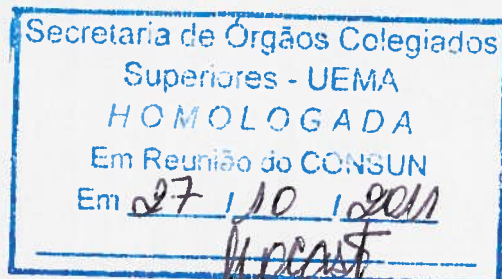 Secretaria de Órgãos Colegiados
Superiores - UEMA
HOMOLOGADA
Em Reunião do CONSUN
Em 27 / 10 / 2011